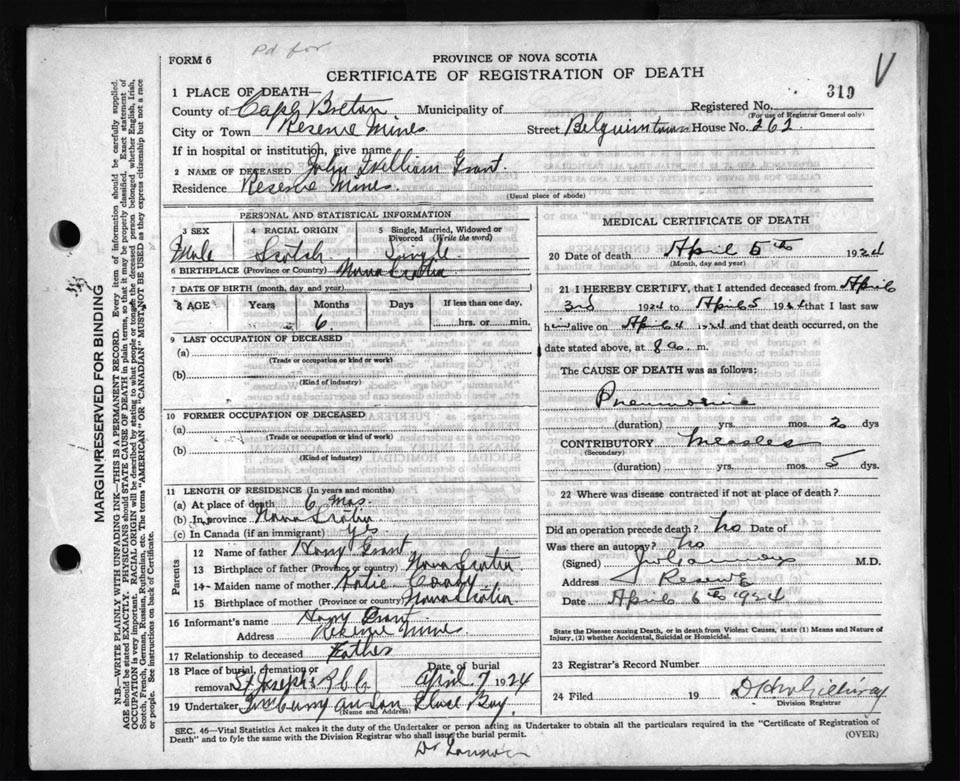 Pd for
FORM 6
PROVINCE OF NOVA SCOTIA
CERTIFICATE OF REGISTRATION OF DEATH
V
1 PLACE OF DEATH—
319
County of Cape Breton Municipality of Registered No.
(For use of Registrar General only)
City or Town Reserve Mines Street Belguimtown House No. 262.
If in hospital or institution, give name
2 NAME OF DECEASED John William Grant.
Residence Reserve Mines.
(Usual place of abode)
MARGIN RESERVED FOR BINDING
N.B.—WRITE PLAINLY WITH UNFADING INK—THIS IS A PERMANENT RECORD. Every item of information should be carefully supplied.
AGE should be stated EXACTLY. PHYSICIANS should STATE CAUSE OF DEATH in plain terms, so that it may be properly classified. Exact statement of
OCCUPATION is very important. RACIAL ORIGIN will be described by stating to what people or tongue the deceased person belonged whether English, Irish,
Scotch, French, German, Russian, Ruthenian, etc. The terms "AMERICAN" OR "CANADIAN" MUST NOT BE USED as they express citizenship but not a race
or people. See instructions on back of Certificate.
PERSONAL AND STATISTICAL INFORMATION
3 SEX 4 RACIAL ORIGIN 5 Single, Married, Widowed or
Divorced (Write the word)
Male Scotch Single
6 BIRTHPLACE (Province or Country) Nova Scotia
7 DATE OF BIRTH (month, day and year)
8 AGE Years Months Days If less than one day,
6 hrs. or min.
9 LAST OCCUPATION OF DECEASED
(a)
(Trade or occupation or kind or work)
(b)
(Kind of industry)
10 FORMER OCCUPATION OF DECEASED
(a)
(Trade or occupation or kind of work)
(b)
(Kind of industry)
11 LENGTH OF RESIDENCE (In years and months)
(a) At place of death 6 Mos.
(b) In province Nova Scotia
(c) In Canada (if an immigrant) yes
Parents
12 Name of father Harry Grant
13 Birthplace of father (Province or country) Nova Scotia
14 Maiden name of mother Katie
15 Birthplace of mother (Province or country) Nova Scotia
16 Informant's name Harry Grant
Address Reserve Mines
17 Relationship to deceased Father
18 Place of burial, cremation or Date of burial
removal St Joseph's R.C.C. April 7 1924
19 Undertaker and Son Glace Bay
(Name and Address)
MEDICAL CERTIFICATE OF DEATH
20 Date of death April 5th 1924
(Month, day and year)
21 I HEREBY CERTIFY, that I attended deceased from April
3rd 1924 to April 5 1924 that I last saw
him alive on April 4 1924 and that death occurred, on
date stated above, at 8 a. m.
The CAUSE OF DEATH was as follows:
Pneumonia
(duration) yrs. mos. 2 dys
CONTRIBUTORY Measles
(Secondary)
(duration) yrs. mos. 5 dys.
22 Where was disease contracted if not at place of death?
Did an operation precede death? no Date of
Was there an autopsy? no
(Signed) M.D.
Address Reserve
Date April 6th 1924
State the Disease causing Death, or in death from Violent Causes, state (1) Means and Nature of
Injury, (2) whether Accidental, Suicidal or Homicidal.
23 Registrar's Record Number
24 Filed 19
Division Registrar
SEC. 46—Vital Statistics Act makes it the duty of the Undertaker or person acting as Undertaker to obtain all the particulars required in the "Certificate of Registration of
Death" and to fyle the same with the Division Registrar who shall issue the burial permit.
(OVER)
Dr